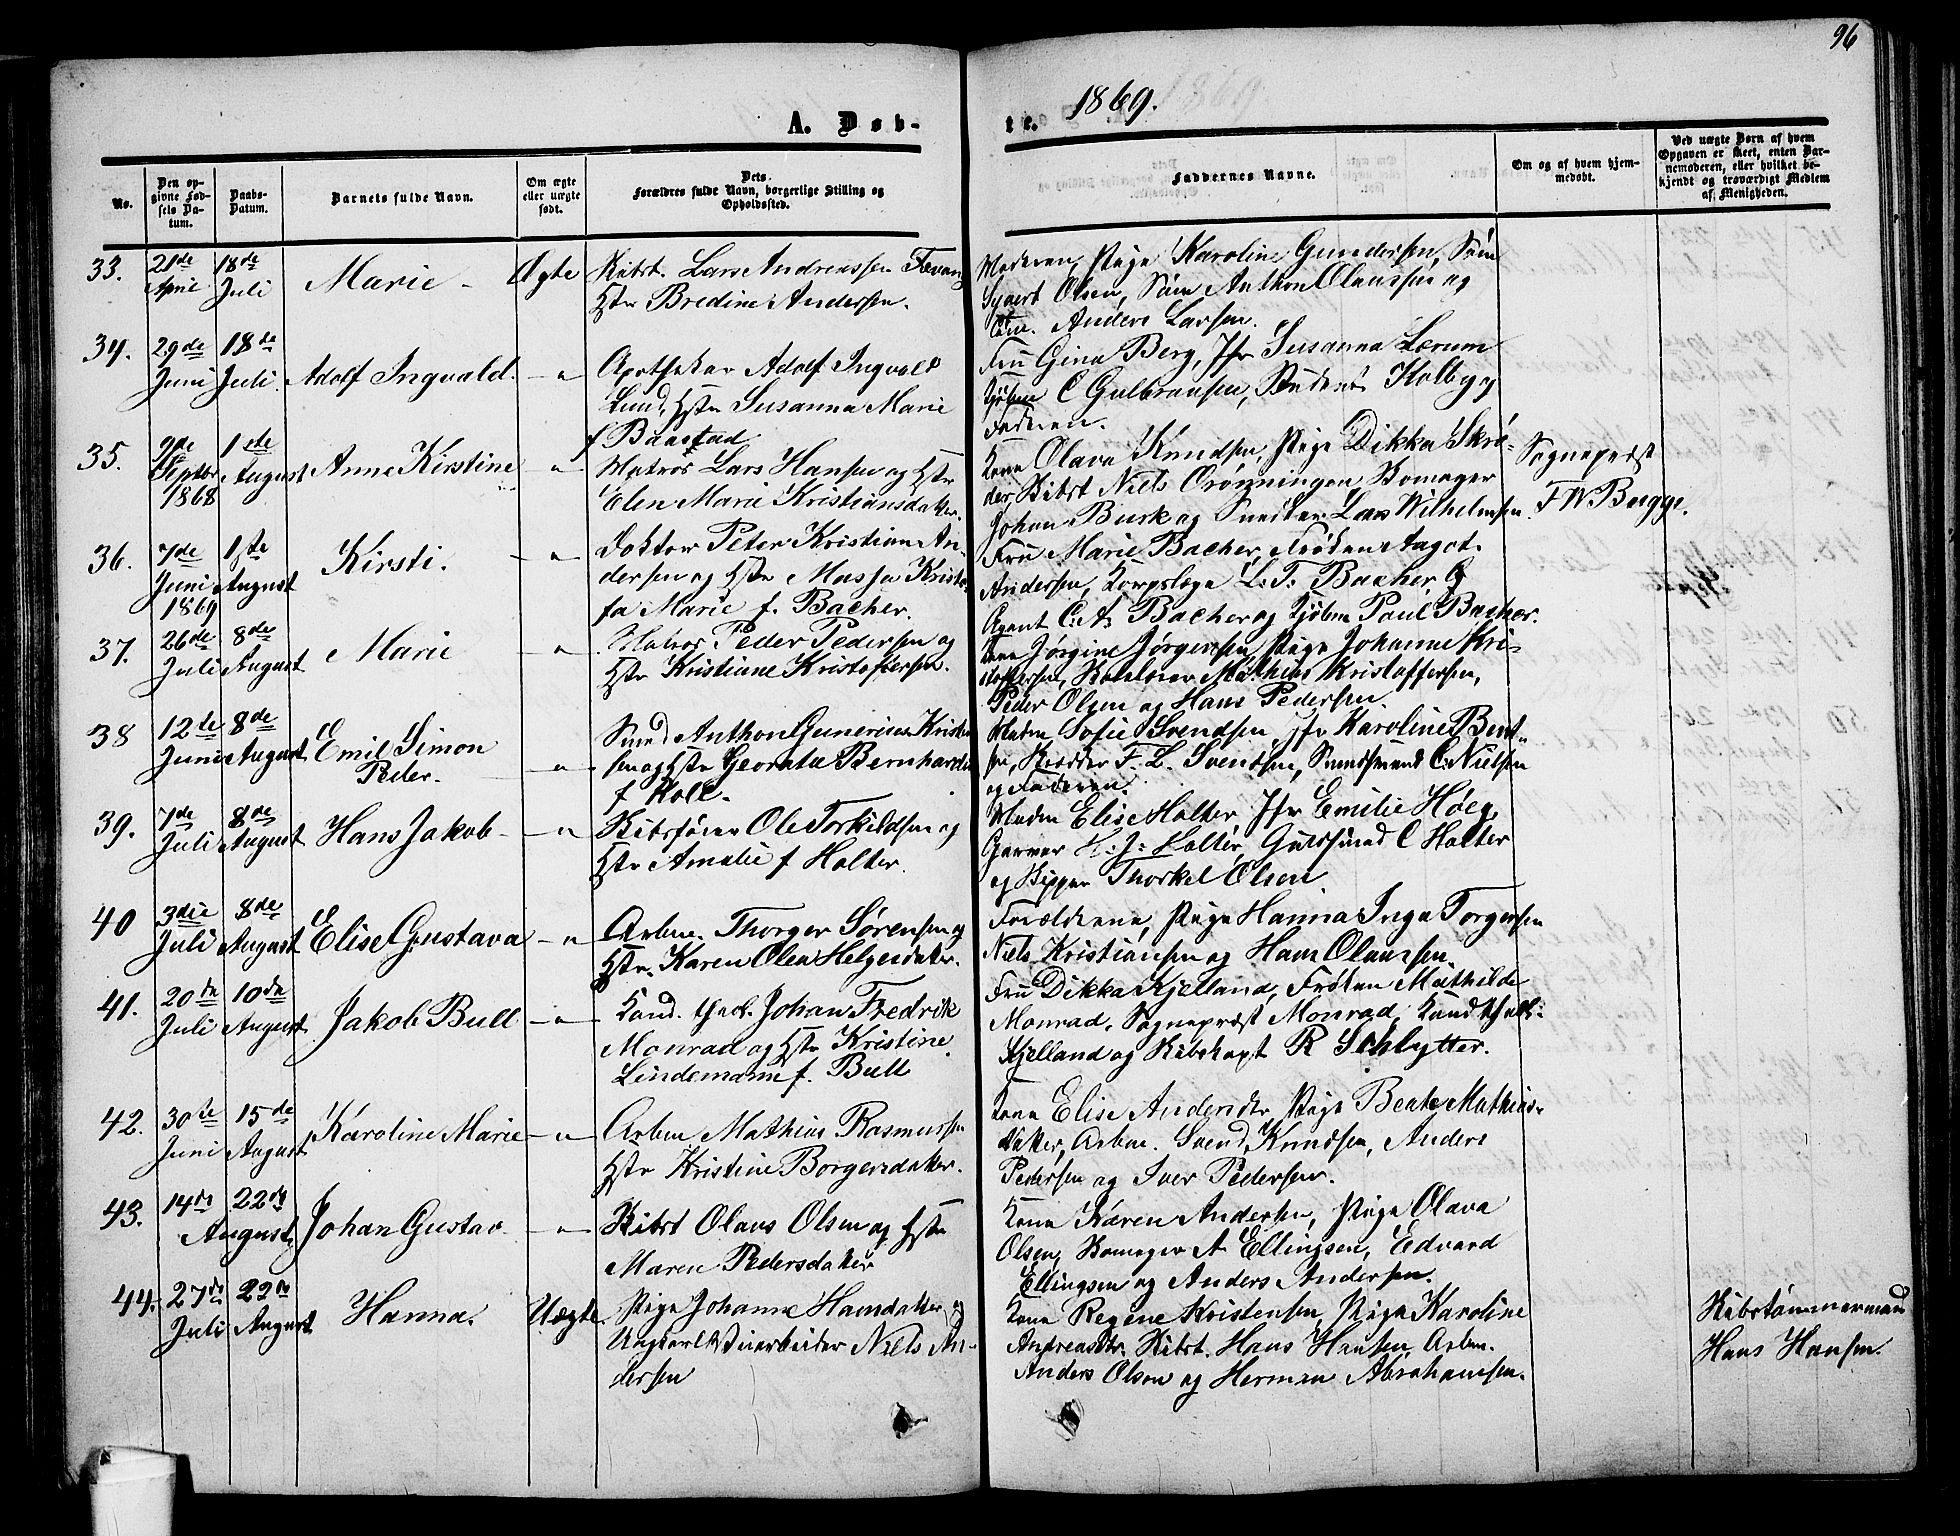 96
1869.
A. Døb-
te.
No.
Den op-
givne Fød-
sels Da-
tum.
Daabs-
Datum.
Barnets fulde Navn.
Om ægte
eller uægte
født.
Dets
Forældres fulde Navn, borgerlige Stilling og
Opholdssted.
Faddernes Navne.
Om og af hvem hjem-
medøbt.
Ved uægte Børn af hvem
Opgaven er skeet, enten Bar-
nemoderen, eller hvilket be-
kjendt og troværdigt Medlem
af Menigheden.
33.
21de
April
18de
Juli
Marie
Ægte
Skibst. Lars Andreassen
Hstr Bredine Andersen.
Moderen, Pige Karoline Gundersen,
Syvert Olsen, Anthon Olaussen og
Anders Larsen.
34.
29de
Juni
18de
Juli
Adolf Ingvald.
— " —
Apotheker Adolf Ingvald
Lund, Hstr Susanna Marie
f Baastad
Fru Gina Berg, Jfr Susanna Lærum
C Gulbransen, Student Kolby og
Faderen.
35.
9de
Septbr
1868
1ste
August
Anne Kirstine
— " —
Matros Lars Hansen og Hstr
Elen Marie Kristiansdatter.
Kone Olava Knudsen, Pige Dikka Skrø-
der, Skibst Niels Grønningen Skomager
Johan Busk og Snedker Lars Wilhelmsen.
Sogneprest
F W Bugge.
36.
7de
Juni
1869
1ste
August
Kirsti.
— " —
Doktor Peter Kristian An-
dersen og Hstr Massa Kristo-
fa Marie f. Bacher.
Fru Marie Bacher, Frøken Aagot
Andersen, Korpslæge L. T. Bacher,
Agent C. A. Bacher og Paul Bacher.
37.
26de
Juli
8de
August
Marie
— " —
Matros Peder Pedersen og
Hstr Kristiane Kristoffersen.
Kone Jørgine Jørgensen, Pige Johanne Kri-
stoffersen, Mathias Kristoffersen,
Peder Olsen og Hans Pedersen.
38
12te
Juni
8de
August
Emil Simon
Peder.
— " —
Smed Anthon Gunerius Kristen
sen og Hstr Georgia Bernhardin
f Holl.
Madm Sofie Svendsen, Jfr Karoline Bent-
sen, Skrædder F. L. Svendsen, Smedsvend C. Nielsen
og Faderen.
39.
7de
Juli
8de
August
Hans Jakob
— " —
Skibsfører Ole Torkildsen og
Hstr Amalie f Holter.
Madm Elise Holter, Jfr Emilie Høeg,
Garver H. J. Holter, Guldsmed C Holter
og Skipper Thorkel Olsen.
40
3die
Juli
8de
August
Elise Gustava
— " —
Arbm. Thorger Sørensen og
Hstr. Karen Olea Helgesdatter.
Forældrene, Pige Hanna Inga Torgersen
Niels Kristiansen og Hans Olaussen.
41.
20de
Juli
10de
August
Jakob Bull
— " —
Kand. theol. Johan Fredrik
Monrad og Hstr Kristine
Lindemann f. Bull
Fru Dikka Kjelland, Frøken Mathilde
Monrad, Sogneprest Monrad, Kand theol:
Kjelland og Skibskapt R Schlytter.
42.
30te
Juni
15de
August
Karoline Marie
— " —
Arbm Mathias Rasmussen
Hstr Kristine Borgersdatter.
Kone Elise Andersdtr, Pige Beate Mathias-
datter, Arbm. Svend Knudsen, Anders
Pedersen og Iver Pedersen.
43.
14de
22de
August
Johan Gustav
— " —
Skibst Olaus Olsen og Hstr
Maren Pedersdatter
Kone Karen Andersen, Pige Olava
Olsen, Skomager A Ellingsen, Edvard
Ellingsen og Anders Andersen.
44.
27de
Juli
22de
August
Hanna.
Uægte.
Pige Johanne Hansdatter og
Ungkarl Niels An-
dersen
Kone Regine Kristensen, Pige Karoline
Andreasdtr. Skibst. Hans Hansen, Arbm.
Anders Olsen og Herman Abrahamsen.
Skibstømmermand
Hans Hansen.